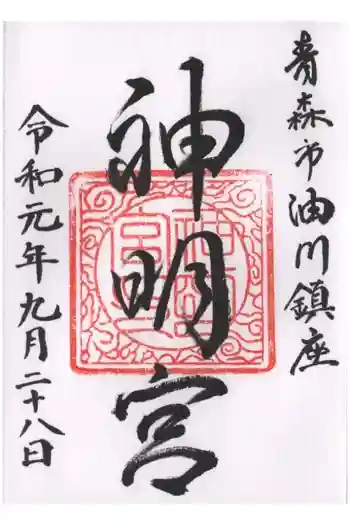 青森市油川鎮座
神明宮
令和元年九月二十八日